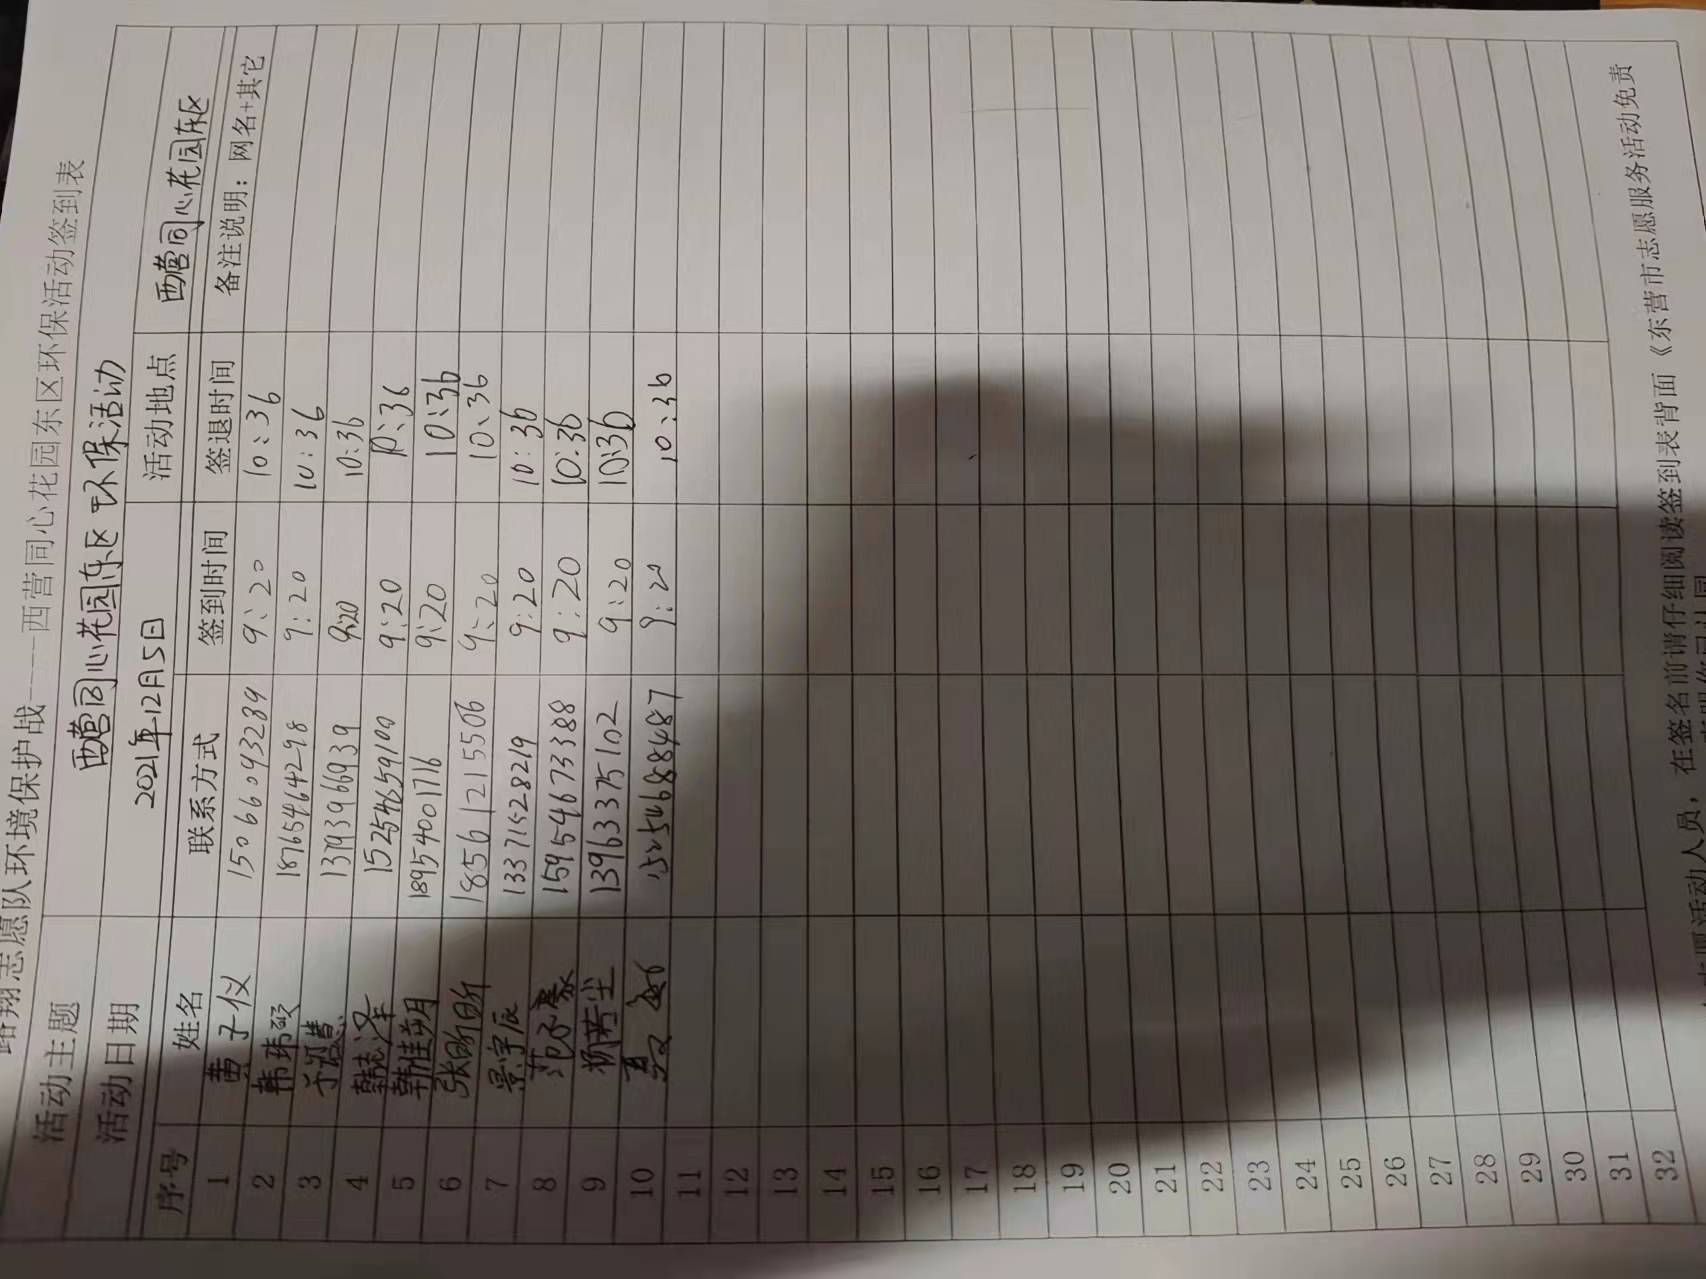 路翔志愿队环境保护战----西营同心花园东区环保活动签到表
活动主题 西营同心花园东区环保活动
活动日期 2021年12月5日 活动地点 西营同心花园东区
序号 姓名 联系方式 签到时间 签退时间 备注说明：网名+其它
1 黄子仪 15066093289 9:20 10:36
2 韩玮硕 18765464298 9:20 10:36
3 9:20 10:36
4 韩志泽 15254659100 9:20 10:36
5 韩佳玥 18954001716 9:20 10:36
6 张昕昕 18561215506 9:20 10:36
7 景宇辰 13371528219 9:20 10:36
8 15954673388 9:20 10:36
9 杨若尘 13963375102 9:20 10:36
10 15254688487 9:20 10:36
11
12
13
14
15
16
17
18
19
20
21
22
23
24
25
26
27
28
29
30
31
32
活动人员，在签名前请仔细阅读签到表背面《东营市志愿服务活动免责